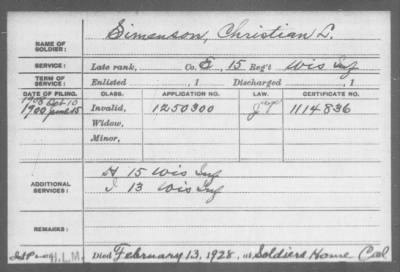 NAME OF SOLDIER: Simenson, Christian L.
SERVICE: Late rank, Co. E, 15 Reg't Wis Inf
TERM OF SERVICE: Enlisted , 1 Discharged , 1
DATE OF FILING. CLASS. APPLICATION NO. LAW. CERTIFICATE NO.
1908 Oct 10
1900 June 15 Invalid, 1250300 1114836
Widow,
Minor,
ADDITIONAL SERVICES: H 15 Wis Inf
I 13 Wis Inf
REMARKS:
H.L.M. Died February 13, 1928, at Soldiers Home Cal